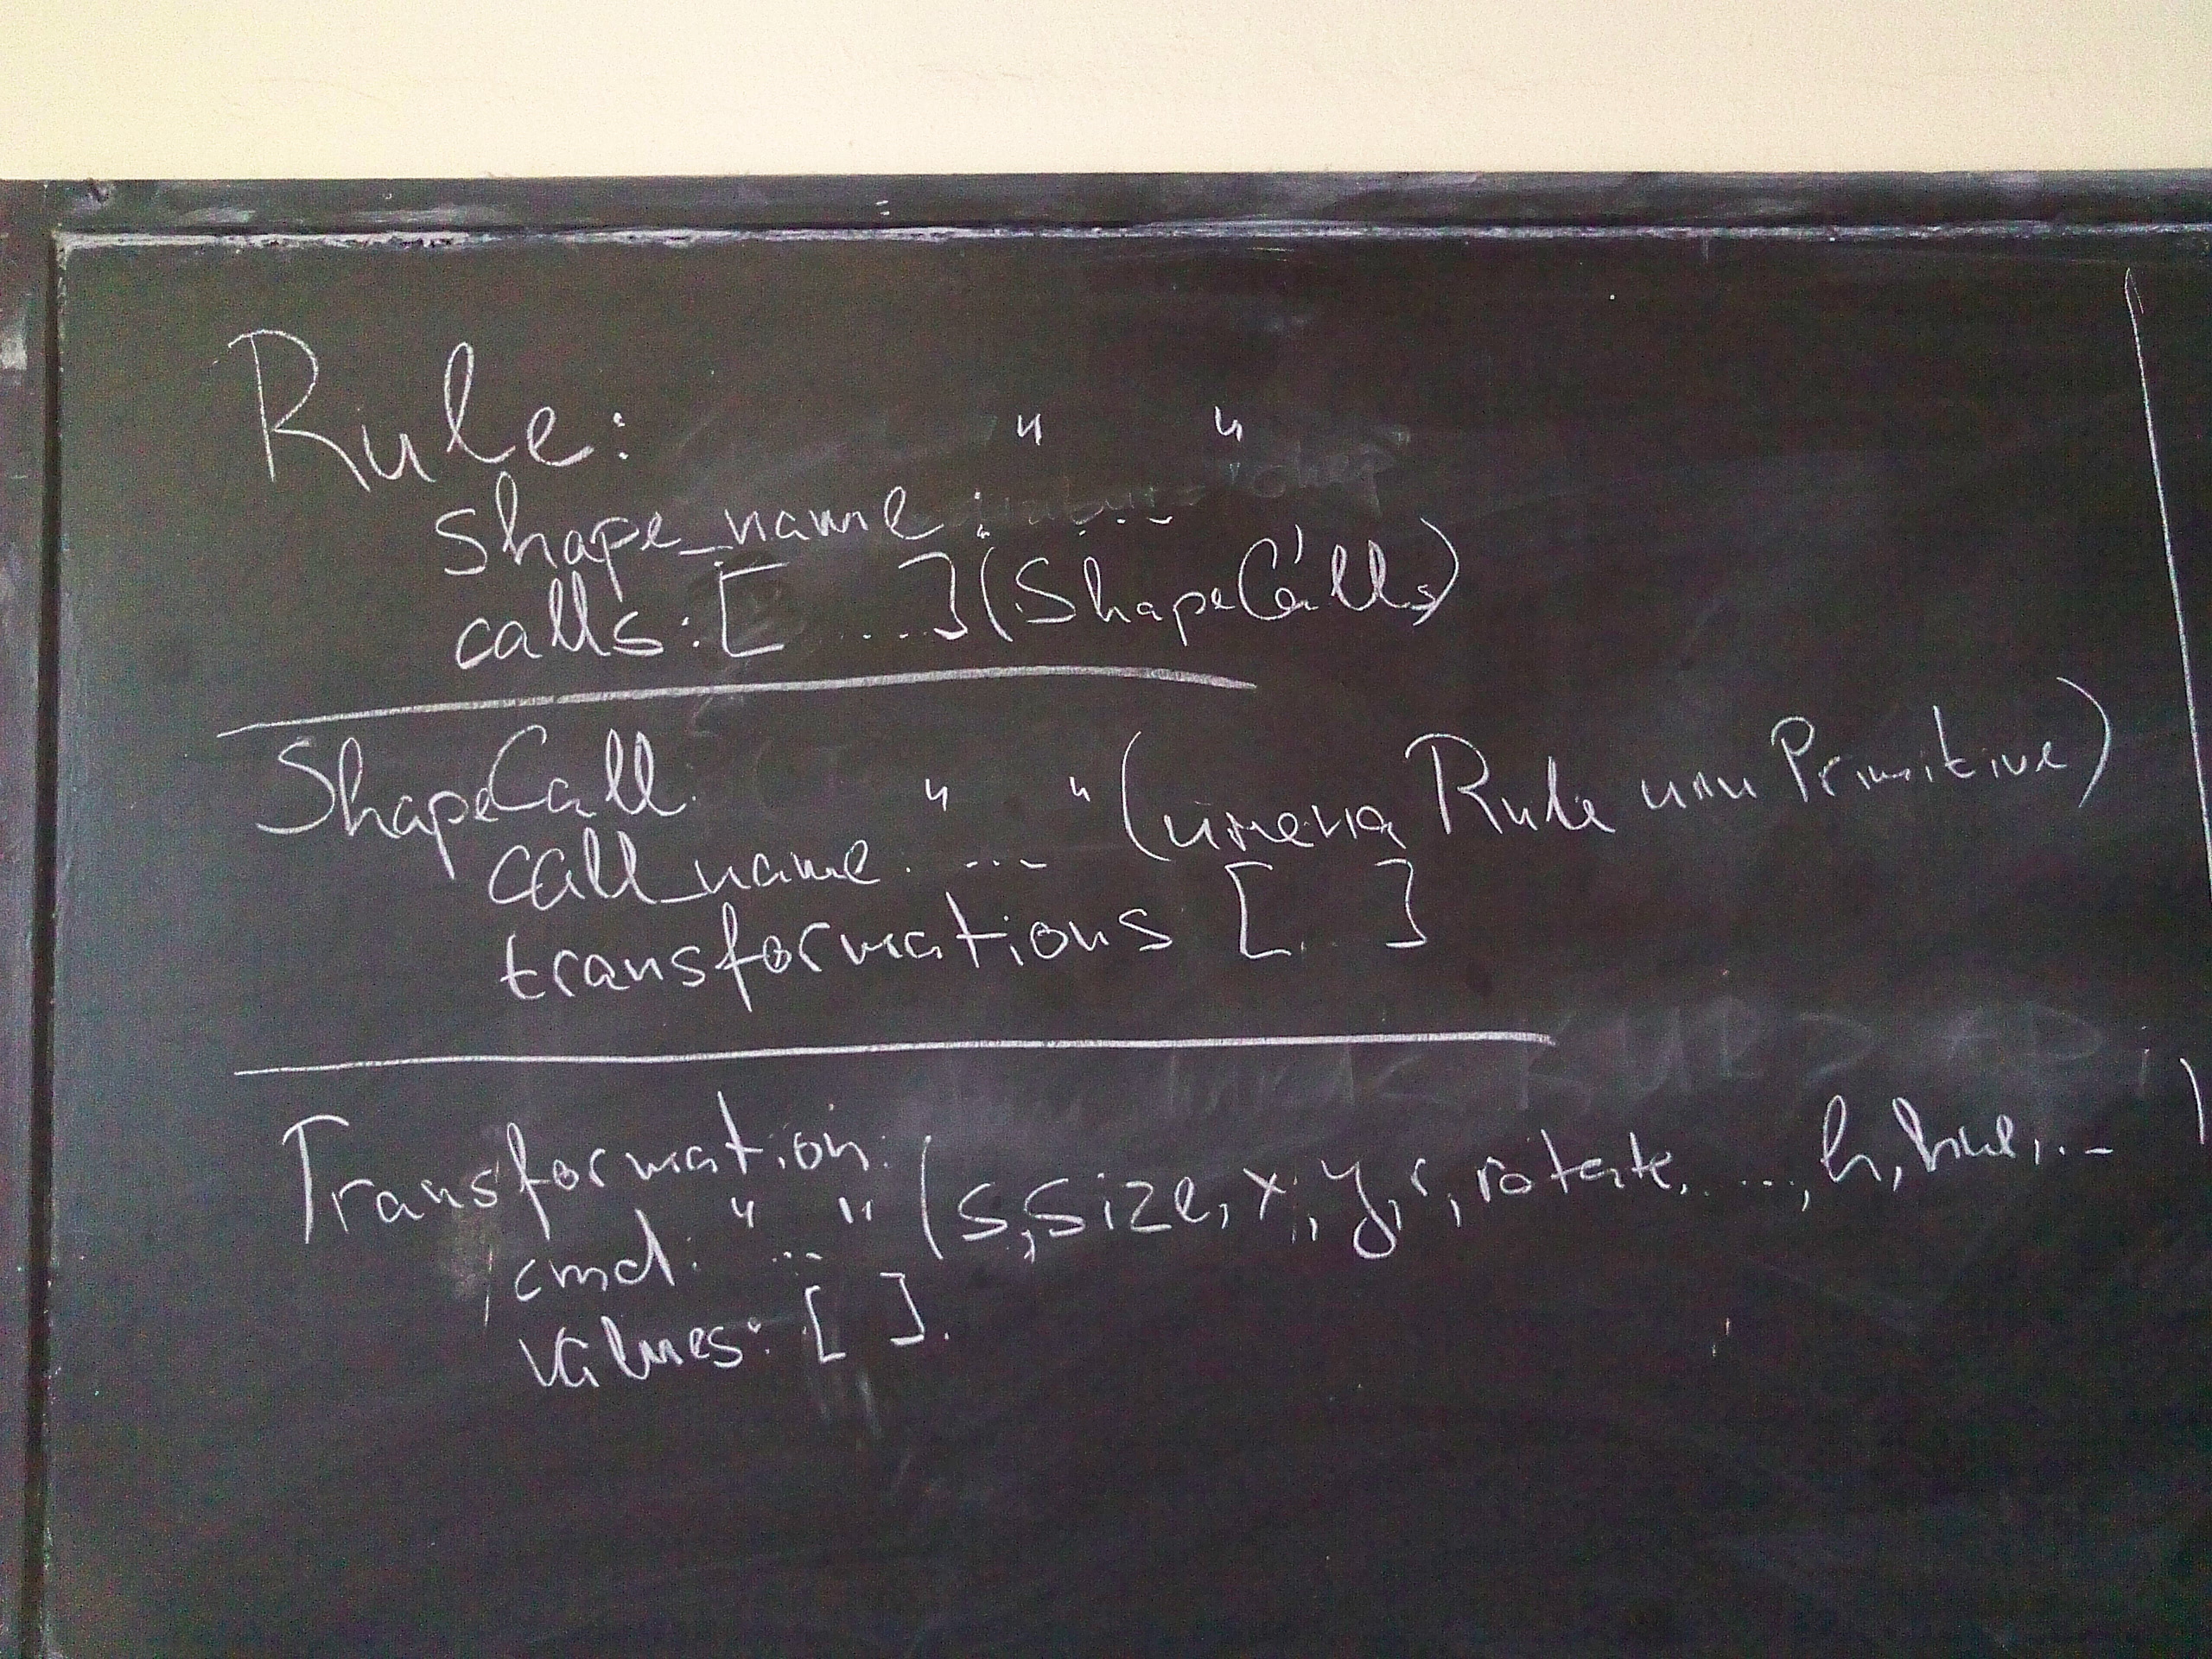 Rule:
shape_name: "..."
calls: [ .... ] (ShapeCalls)
ShapeCall
call_name. "..." (имена Rule или Primitive)
transformations [...]
Transformation:
cmd: "..." (s, size, x, y, r, rotate, ..., h, hue, ...)
values: [ ].